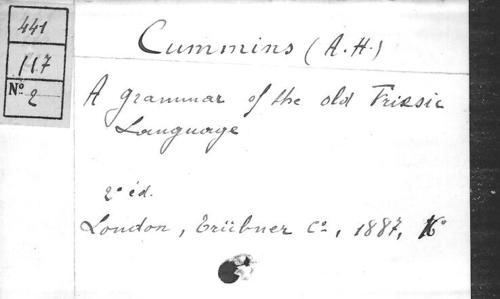 441
117
Nº 2
Cummins (A.H.)
A grammar of the old Friesic
Language
2e éd.
London, Trübner Cº, 1887,